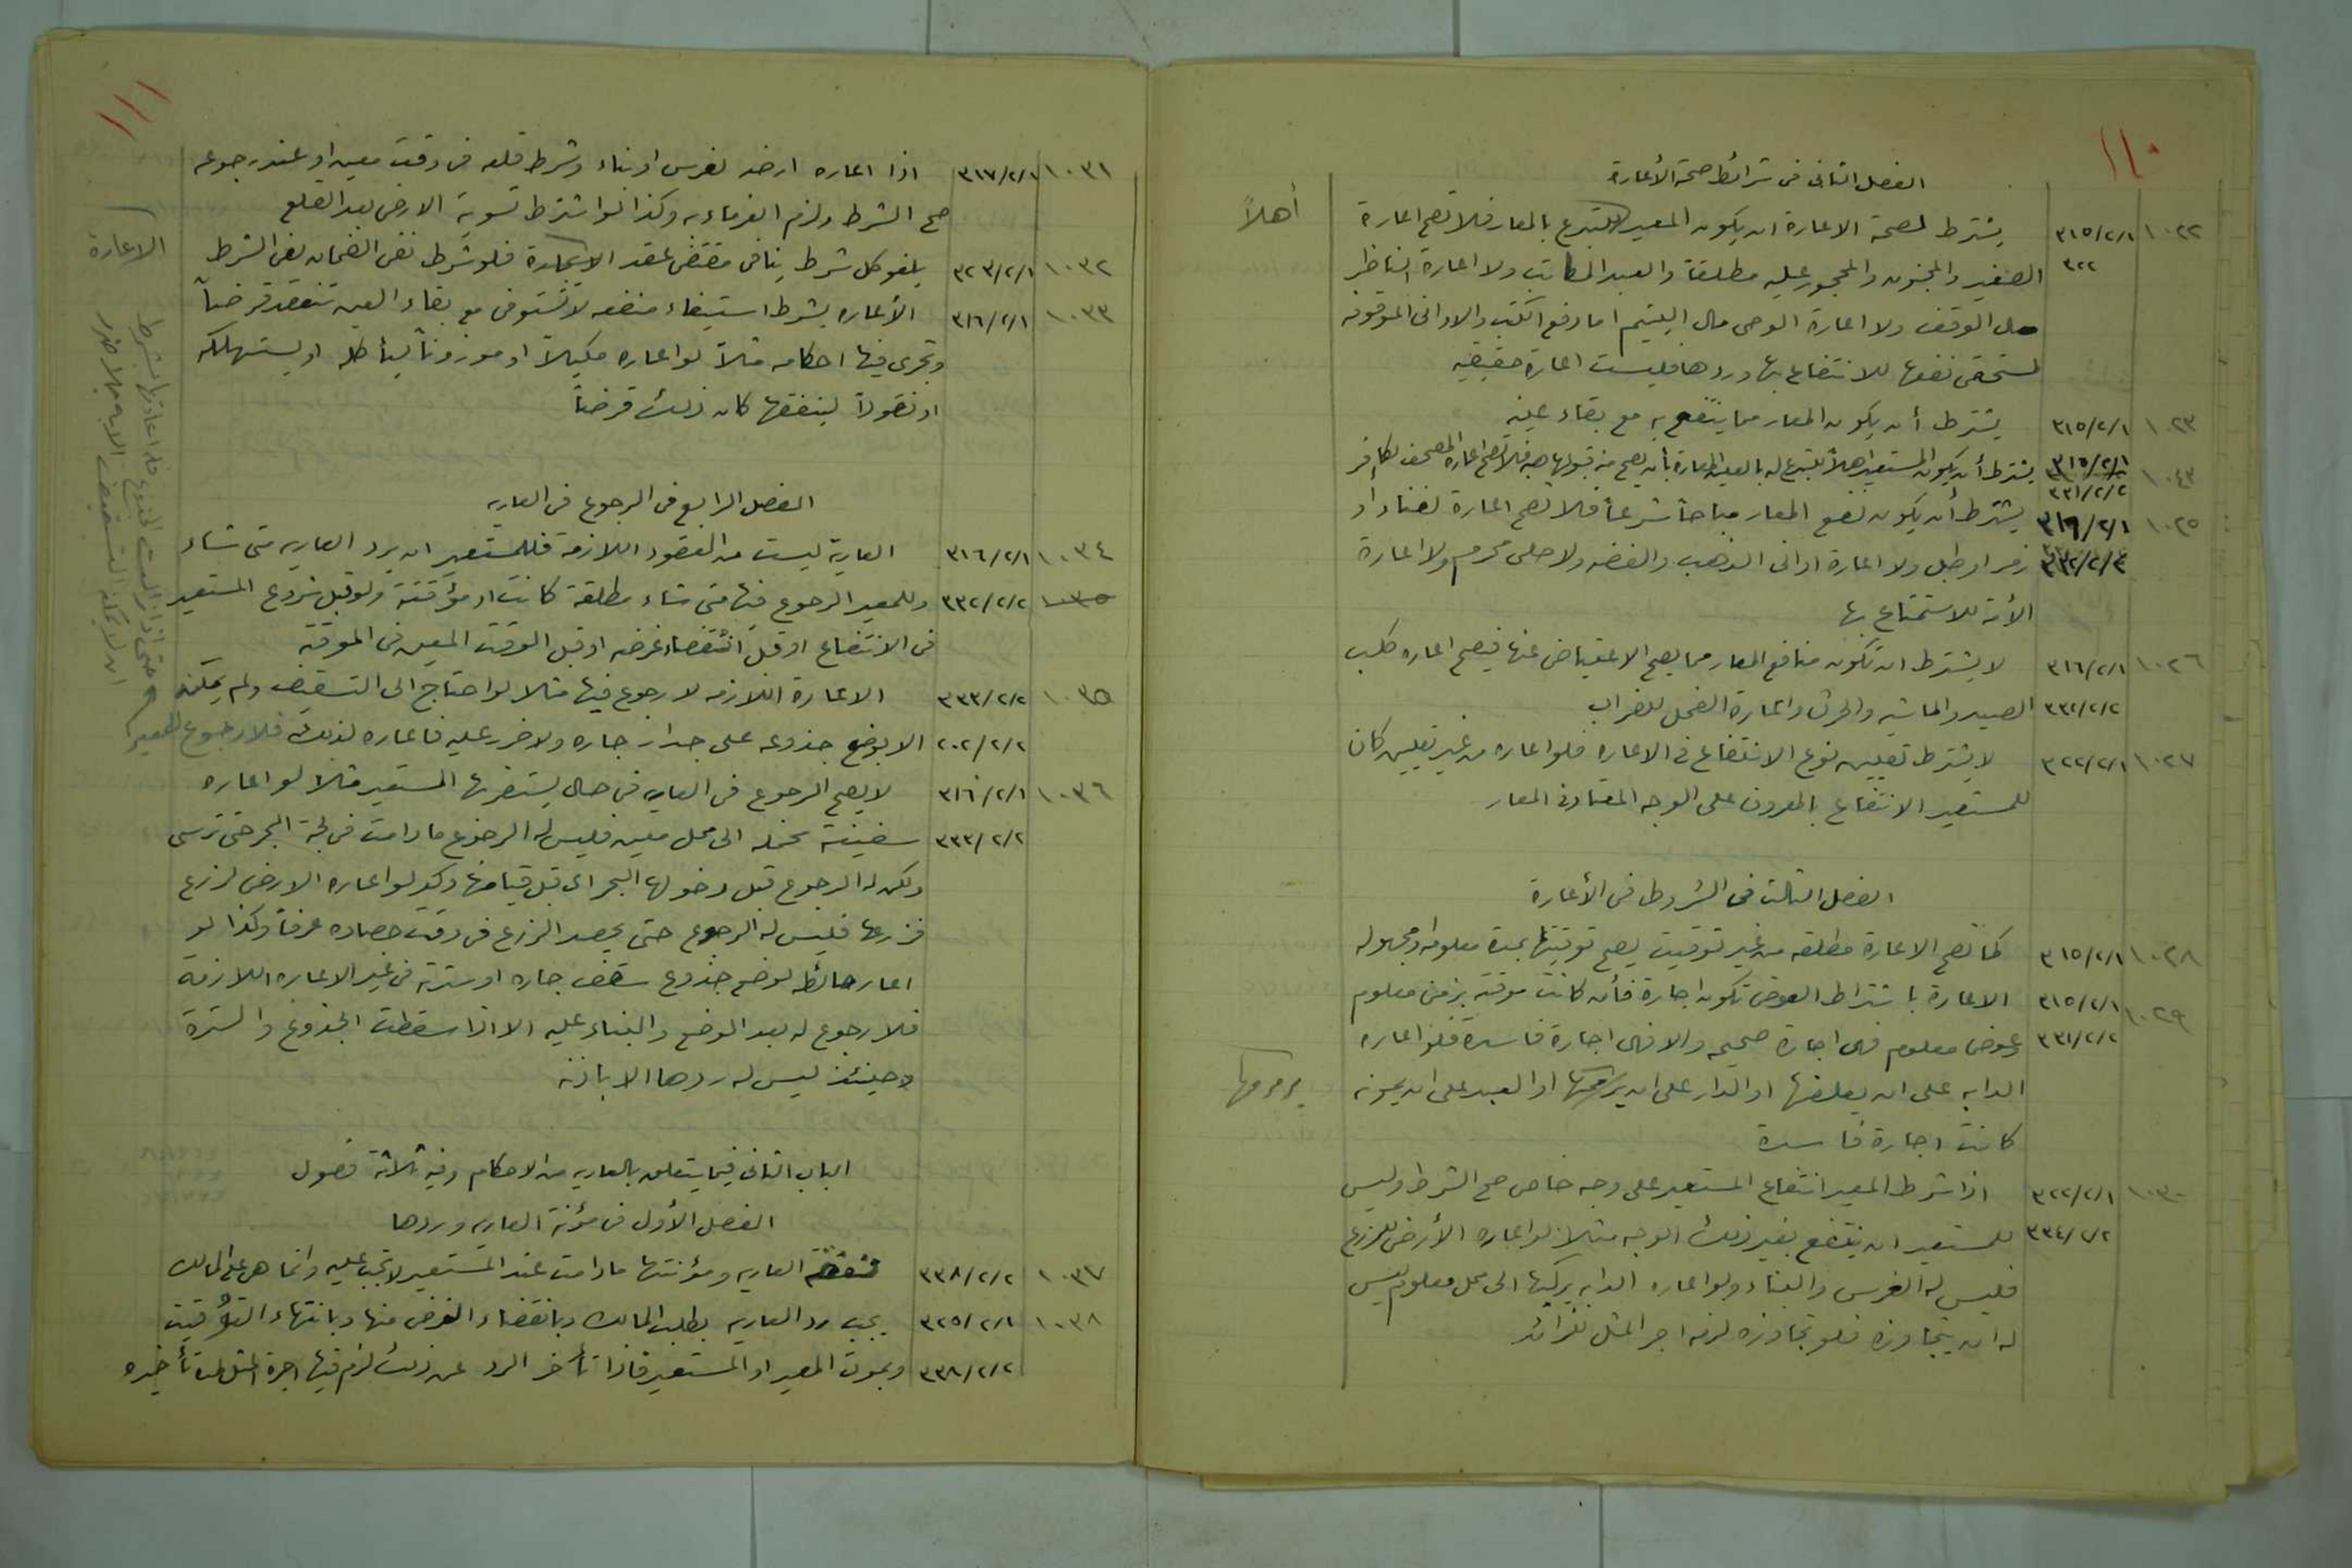 ١١٠
الفصل الثانى فى شرائط صحة الأعارة
١٠٢٢ ٣١٥/٢/١ يشترط لصحة الاعارة ان يكون المعير للتبرع بالمعار فلا تصح اعارة
أهلاً
٣٢٢ الصغير والمجنون والمحجور عليه مطلقاً والعبد المكاتب ولا اعارة الناظر
مال الوقف ولا اعارة الوصى مال اليتيم اما دفع الكتب والاوانى الموقوفه
لمستحقى نفعها للانتفاع بها وردها فليست اعارة حقيقيه
١٠٢٣ ٣١٥/٢/١ يشترط أن يكون المعار مما ينتفع به مع بقاء عينه
٣١٥/٢/١ يشترط أن يكون المستعير اهلاً للتبرع له بالعين المعارة بأن يصح منه قبولها هبه فلا تصح اعارة المصحف لكافر
٣٣١/٢/٢
١٠٢٥ ٣١٦/٢/١ يشترط أن يكون نفع المعار مباحاً شرعاً فلا تصح اعارة لغناء أو
زمر او طبل ولا اعارة اوانى الذهب والفضه ولا حلى محرم ولا اعارة
الأمة للاستمتاع بها
١٠٢٦ ٣١٦/٢/١ لا يشترط ان تكون منافع المعار مما يصح الاعتياض عنها فيصح اعاره كلب
٣٣٢/٢/٢ الصيد والماشيه والحرث واعارة الفحل للضراب
١٠٢٧ ٣٢٢/٢/١ لا يشترط تعيين نوع الانتفاع فى الاعاره فلو اعاره من غير تعيين كان
للمستعير الانتفاع بالمعروف على الوجه المعتاد فى المعار
الفصل الثالث فى الشروط فى الأعارة
١٠٢٨ ٣١٥/٢/١ كما تصح الاعارة مطلقه من غير توقيت يصح توقيتها بمدة معلومه او مجهوله
١٠٢٩ ٣١٥/٢/١ الاعارة باشتراط العوض تكون اجارة فأن كانت موقته بزمن معلوم
٣٣١/٢/٢ وعوض معلوم فهى اجارة صحيحه والا فهى اجارة فاسدة فلو اعاره
الدابه على ان يعلفها او الدار على ان يرممها او العبد على ان يمونه
يرممها
كانت اجارة فاسدة
١٠٣٠ ٣٢٢/٢/١ اذا شرط المعير انتفاع المستعير على وجه خاص صح الشرط وليس
٣٣٤/٢/٢ للمستعير ان ينتفع بغير ذلك الوجه مثلا لو اعاره الأرض للزرع
فليس له الغرس والبناء ولو اعاره الدابه يركبها الى محل معلوم ليس
له ان يتجاوزه فلو تجاوزه لزمه اجر المثل للزائد
١١١
١٠٣١ ٣١٧/٢/١ اذا اعاره ارضه لغرس او بناء وشرط قلعه فى وقت معين او عند رجوعه
صح الشرط ولزم الوفاء به وكذا لو اشترط تسوية الارض بعد القلع
١٠٣٢ ٣٢٣/٢/١ يلغو كل شرط ينافى مقتضى عقد فلو شرط نفى الضمان لغى الشرط
الاعارة
١٠٣٣ ٣١٦/٢/١ الأعاره بشرط استيفاء منفعه لا تستوفى مع بقاء العين تنعقد قرضاً
وتجرى فيها احكامه مثلاً لو اعاره مكيلاً او موزوناً ليأكله او يستهلكه
او نقوداً لينفقها كان ذلك قرضاً
الفصل الرابع فى الرجوع فى العاريه
١٠٣٤ ٣١٦/٢/١ العارية ليست من العقود اللازمة فللمستعير ان يرد العاريه متى شاء
٣٣٢/٢/٢ وللمعير الرجوع فيها متى شاء مطلقة كانت او مؤقتة ولو قبل شروع المستعير
فى الانتفاع او قبل انقضاء غرضه او قبل الوقت المعين فى الموقته
١٠٣٥ ٣٣٣/٢/٢ الاعارة اللازمه لا رجوع فيها مثلا لو احتاج الى التسقيف ولم يمكنه
٢٠٢/٢/٢ الا بوضع جذوعه على جدار جاره ولا ضرر عليه فاعاره لذلك فلا رجوع للمعير
١٠٣٦ ٣١٦/٢/١ لا يصح الرجوع فى العاريه فى حال يستضر بها المستعير مثلا لو اعاره
٣٣٣/٢/٢ سفينة تحمله الى محل معين فليس له الرجوع ما دامت فى لجة البحر حتى ترسى
ولكن له الرجوع قبل دخولها البحر اى قبل قيامها وكذا لو اعاره الارض لزرع
فزرعها فليس له الرجوع حتى يحصد الزرع فى وقت حصاده عرفاً وكذا لو
اعار حائطه لوضع جذوع سقف جاره او سترته فى غير الاعاره اللازمة
فلا رجوع له بعد الوضع والبناء عليه الا اذا سقطت الجذوع والسترة
وحينئذ ليس له ردها الا باذنه
الباب الثانى فيما يتعلق بالعاريه من الاحكام وفيه ثلاثة فصول
الفصل الأول فى مؤنة العاريه وردها
١٠٣٧ ٣٣٨/٢/٢ نفقة العاريه ومؤنتها ما دامت عند المستعير لا تجب عليه وانما هى على المالك
١٠٣٨ ٣٢٥/٢/١ يجب رد العاريه بطلب المالك وبانقضاء الغرض منها وبانتهاء التوقيت
٣٣٨/٢/٢ وبموت المعير او المستعير فاذا تأخر الرد عن ذلك لزم فيها اجرة المثل لمدة تأخيره